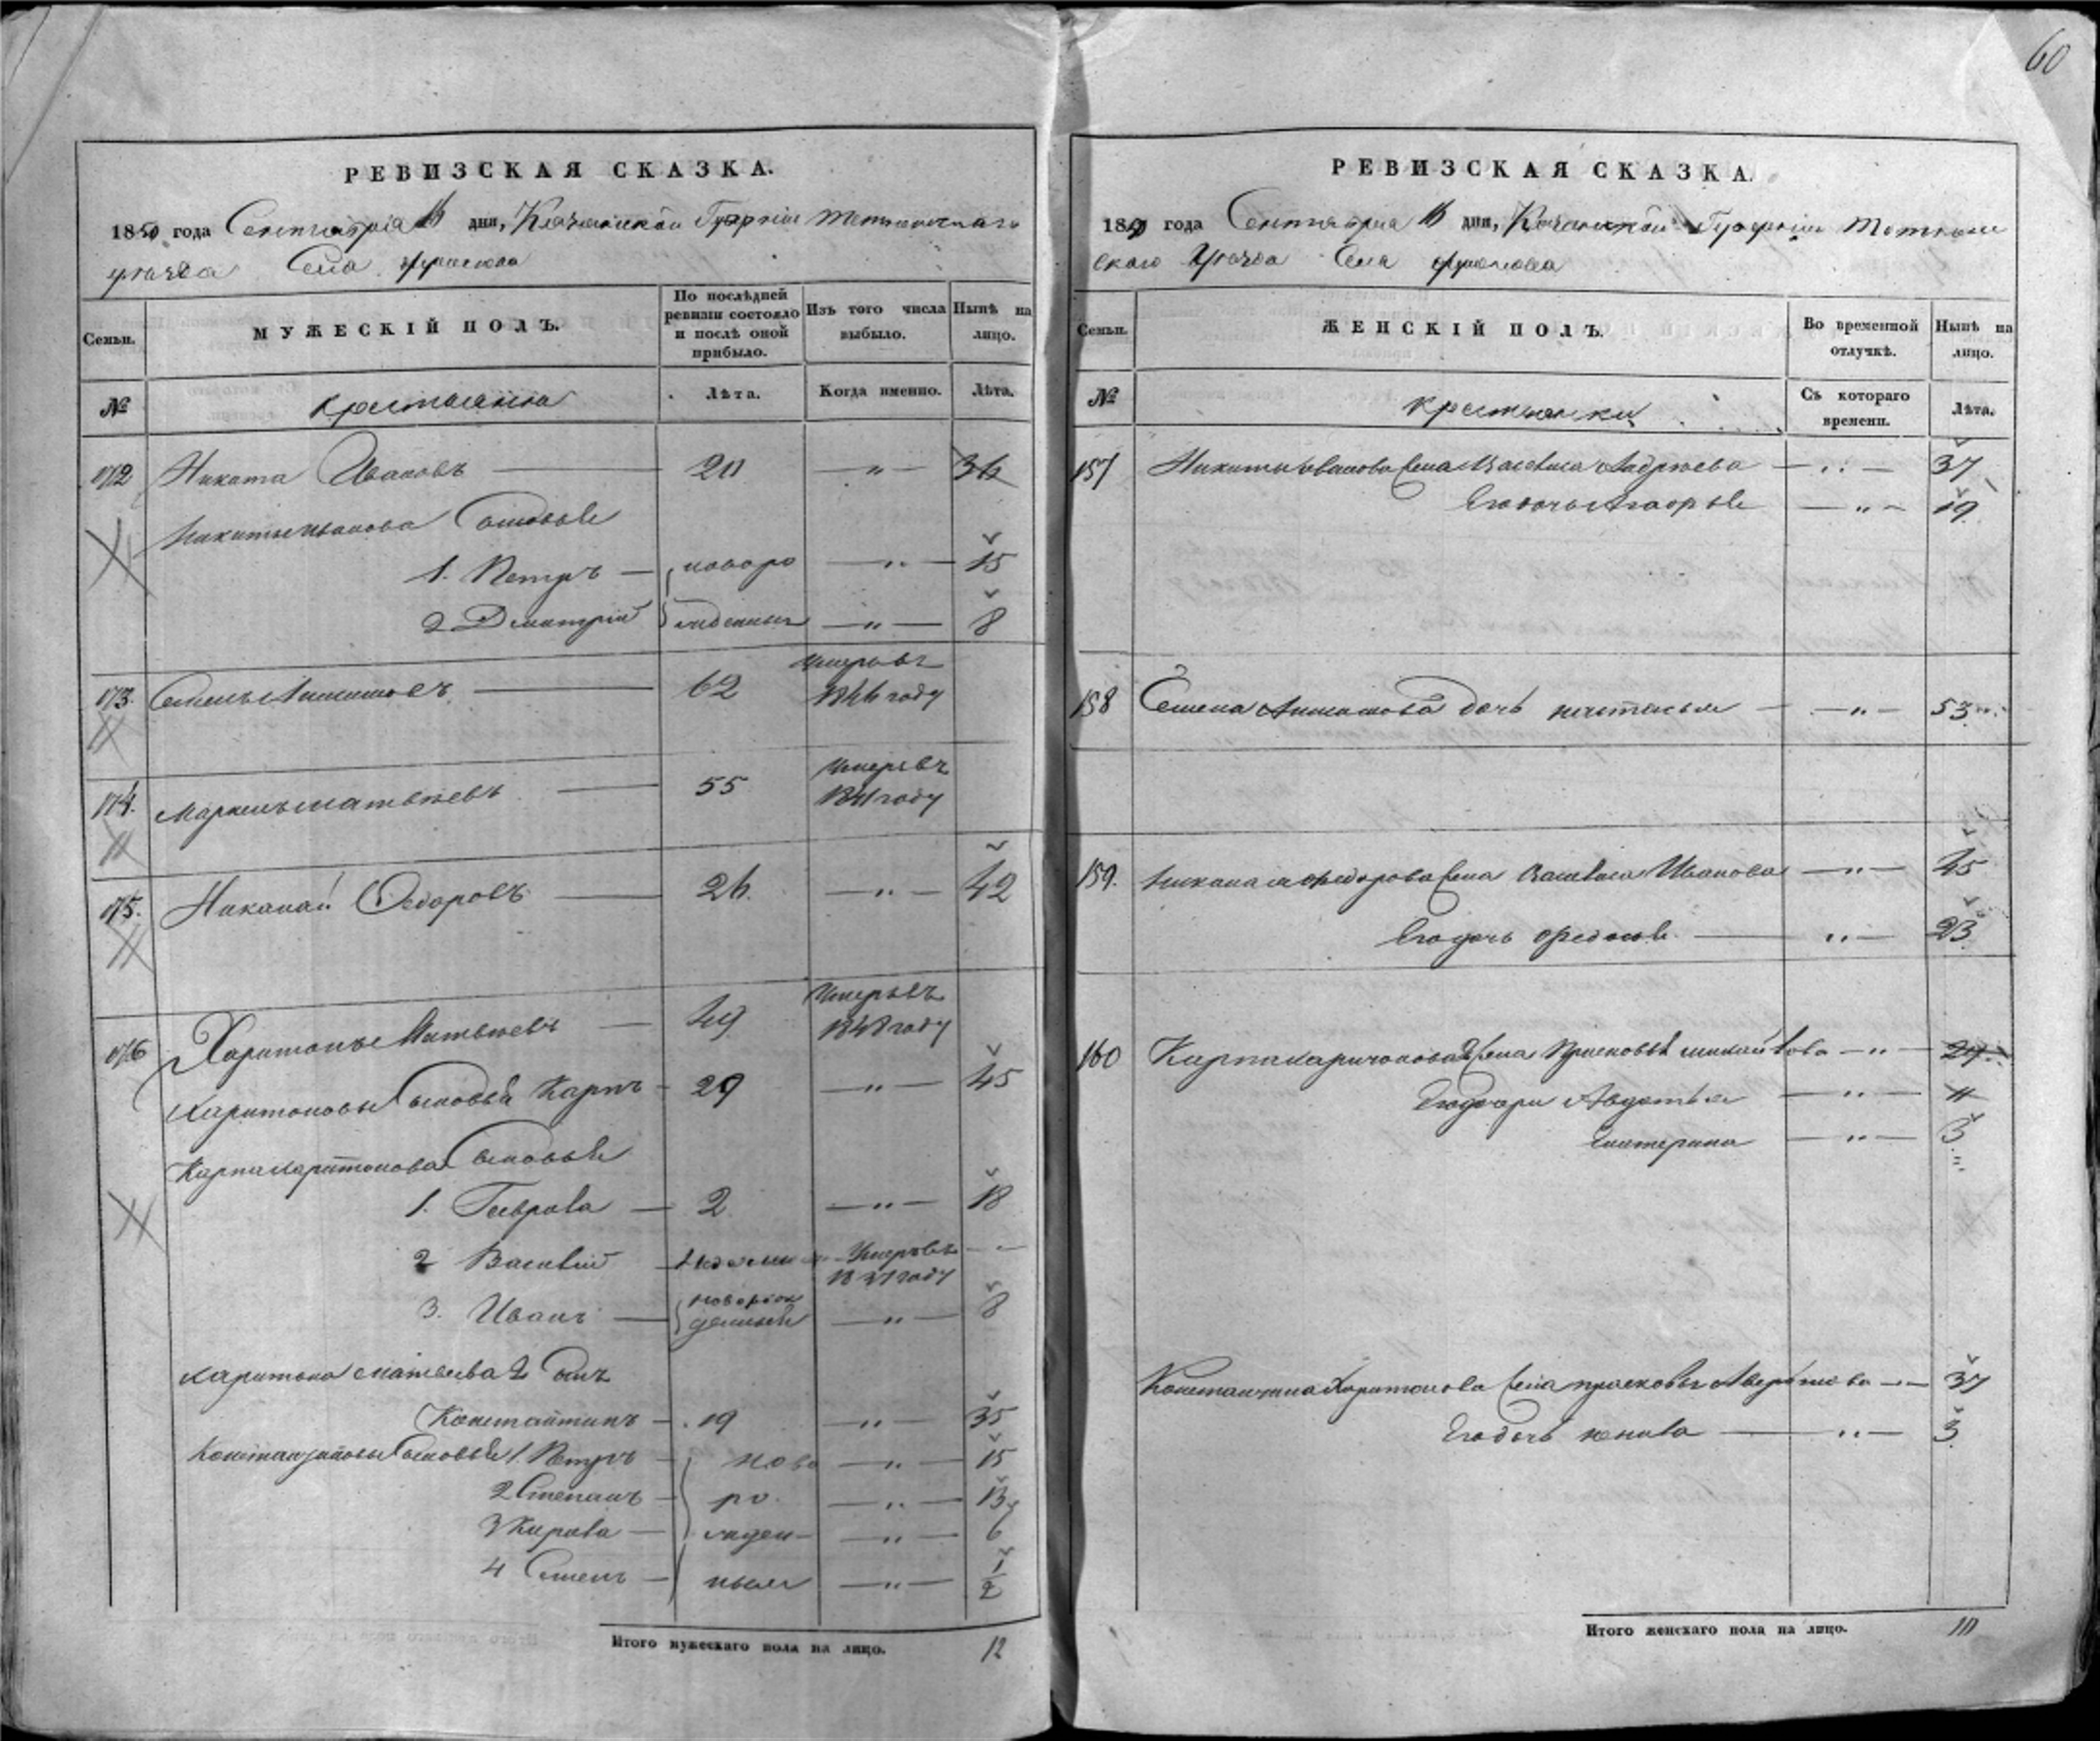 60
РЕВИЗСКАЯ СКАЗКА.
1850 года Сентября 16 дни, Казанской Губернии Тетюшскаго
уезда Села
Семьи.
МУЖЕСКІЙ ПОЛЪ.
По послѣдней ревизіи состояло и послѣ оной прибыло.
Изъ того числа выбыло.
Нынѣ на лицо.
№
крестьяне
Лѣта.
Когда именно.
Лѣта.
172 Никита Ивановъ — 20 — " — 36
Никиты Иванова Сыновья
1. Петръ — новоро — " — 15
2 Дмитрий жденныя — " — 8
173. Семенъ — 62 Умеръ въ 1846 году
174. Маркелъ Матвѣевъ — 55 Умеръ въ 1841 году
175. Никалай Федоровъ — 26. — " — 42
176 Харитонъ Матвѣевъ — 49 Умеръ въ 1848 году
Харитоновы Сыновья Карпъ — 29 — " — 45
Карпа Харитонова Сыновья
1. Гаврова — 2 — " — 18
2 Василий — Умеръ въ
3. Иванъ — новорож денный — " — 8
Харитона Матвеева 2 Сынъ
Константинъ — 19 — " — 35
Константиновы Сыновья 1. Петръ — ново — " — 15
2 Степанъ — ро — " — 13
3 Кирила — жден — " — 6
4 Семенъ — ныя — " — 1/2
Итого мужескаго пола на лицо. 12
РЕВИЗСКАЯ СКАЗКА.
1850 года Сентября 16 дни, Казанской Губернии Тетюш
скаго Уезда Села
Семьи.
ЖЕНСКІЙ ПОЛЪ.
Во временной отлучкѣ.
Нынѣ на лицо.
№
крестьянки
Съ котораго времени.
Лѣта.
157 Никиты Иванова Жена Василиса Андреева — " — 37
Его дочь — " — 19
158 Семена дочь Настасья — " — 53
159. Никалая Федорова Жена Василиса Иванова — " — 45
Его дочь Федосья — " — 23
160 Карпа Харитонова 2 Жена Прасковья Михайлова — " — 29
Его дочери Авдотья — " — 11
Катерина — " — 3
Константина Харитонова Жена Прасковья — 37
Его дочь — " — 3
Итого женскаго пола на лицо. 10